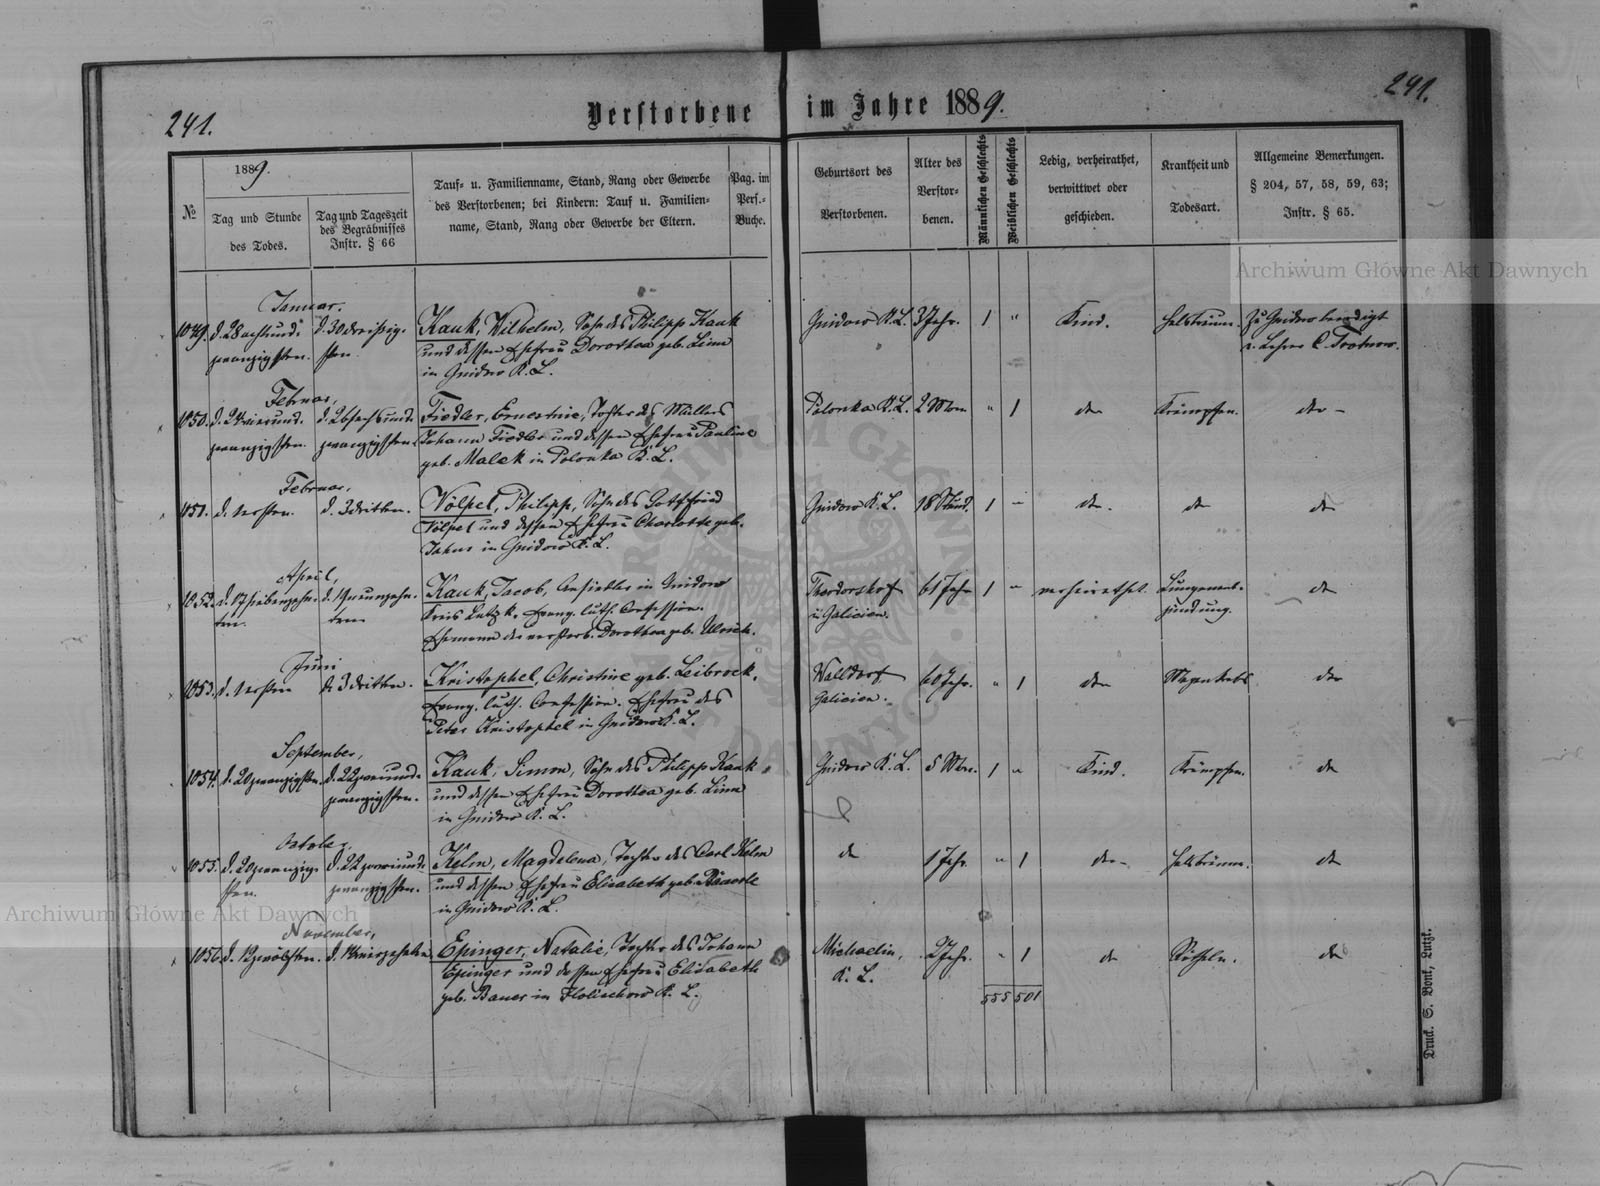 241.
Verstorbene im Jahre 1889.
241.
№
1889.
Tag und Stunde
des Todes.
Tag und Tageszeit
des Begräbnisses
Instr. § 66
Tauf- u. Familienname, Stand, Rang oder Gewerbe
des Verstorbenen; bei Kindern: Tauf u. Familien-
name, Stand, Rang oder Gewerbe der Eltern.
Pag. im
Pers.-
Buche.
Geburtsort des
Verstorbenen.
Alter des
Verstor-
benen.
Männlichen Geschlechts
Weiblichen Geschlechts
Ledig, verheirathet,
verwittwet oder
geschieden.
Krankheit und
Todesart.
Allgemeine Bemerkungen.
§ 204, 57, 58, 59, 63;
Instr. § 65.
Januar.
1049. d. 28 achtund- d. 30 dreißig- Kauk, Wilhelm, Sohn des Philipp Kauk Gnidow K. L. 3 Jahr. 1 " Kind. Halsbräune. Zu Gnidow beerdigt
zwanzigsten. sten. und dessen Ehefrau Dorothea geb. Linn v. Lehrer C.
in Gnidow K. L.
Februar,
1050. d. 24 vierund- d. 26 sechsund- Fiedler, Ernestine, Tochter des Müllers Polonka K. L. 2 Mon. " 1 do Krämpfen. do
zwanzigsten. zwanzigsten. Johann Fiedler und dessen Ehefrau Pauline
geb. Malek in Polonka K. L.
Februar,
1051. d. 1 ersten. d. 3 dritten. Völpel, Philipp, Sohn des Gottfried Gnidow K. L. 18 Stund. 1 " do. do do
Völpel und dessen Ehefrau Charlotte geb.
in Gnidow K. L.
April,
1052. d. 17 siebenzehn- d. 19 neunzehn- Kauk, Jacob, Ansiedler in Gnidow Theodorshof 61 Jahr 1 " verheirathet. Lungenent- do
ten. ten. Kreis Lutzk. Evang. luth. Confession. in Galicien. zündung.
Ehemann der verstorb. Dorothea geb. Ulrich.
Juni
1053. d. 1 ersten d. 3 dritten. Kristophel, Christine geb. Leibrock, Walldorf 60 Jahr. " 1 do Magenkrebs do
Evang. luth. Confession. Ehefrau des Galicien.
Peter Kristophel in Gnidow K. L.
September,
1054. d. 20 zwanzigsten d. 22 zweiund- Kauk, Simon, Sohn des Philipp Kauk Gnidow K. L. 5 Mon. 1 " Kind. Krämpfen. do
zwanzigsten. und dessen Ehefrau Dorothea geb. Linn
in Gnidow K. L.
October,
1055. d. 20 zwanzig- d. 22 zweiund- Kelm, Magdelena, Tochter des Carl Kelm do 1 Jahr. " 1 do Halsbräune. do
sten. zwanzigsten. und dessen Ehefrau Elisabeth geb.
in Gnidow K. L.
November,
1056. d. 12 zwölften. d. 14 vierzehnten. Epinger, Natalie, Tochter des Johann Michaelin, 2 Jahr. " 1 do Rötheln. do
Epinger und dessen Ehefrau Elisabeth K. L.
geb. Bauer in K. L. 555 501
Druck. S. Bonk, Lutzk.
Archiwum Główne Akt Dawnych
Archiwum Główne Akt Dawnych
ARCHIWUM GŁÓWNE AKT DAWNYCH